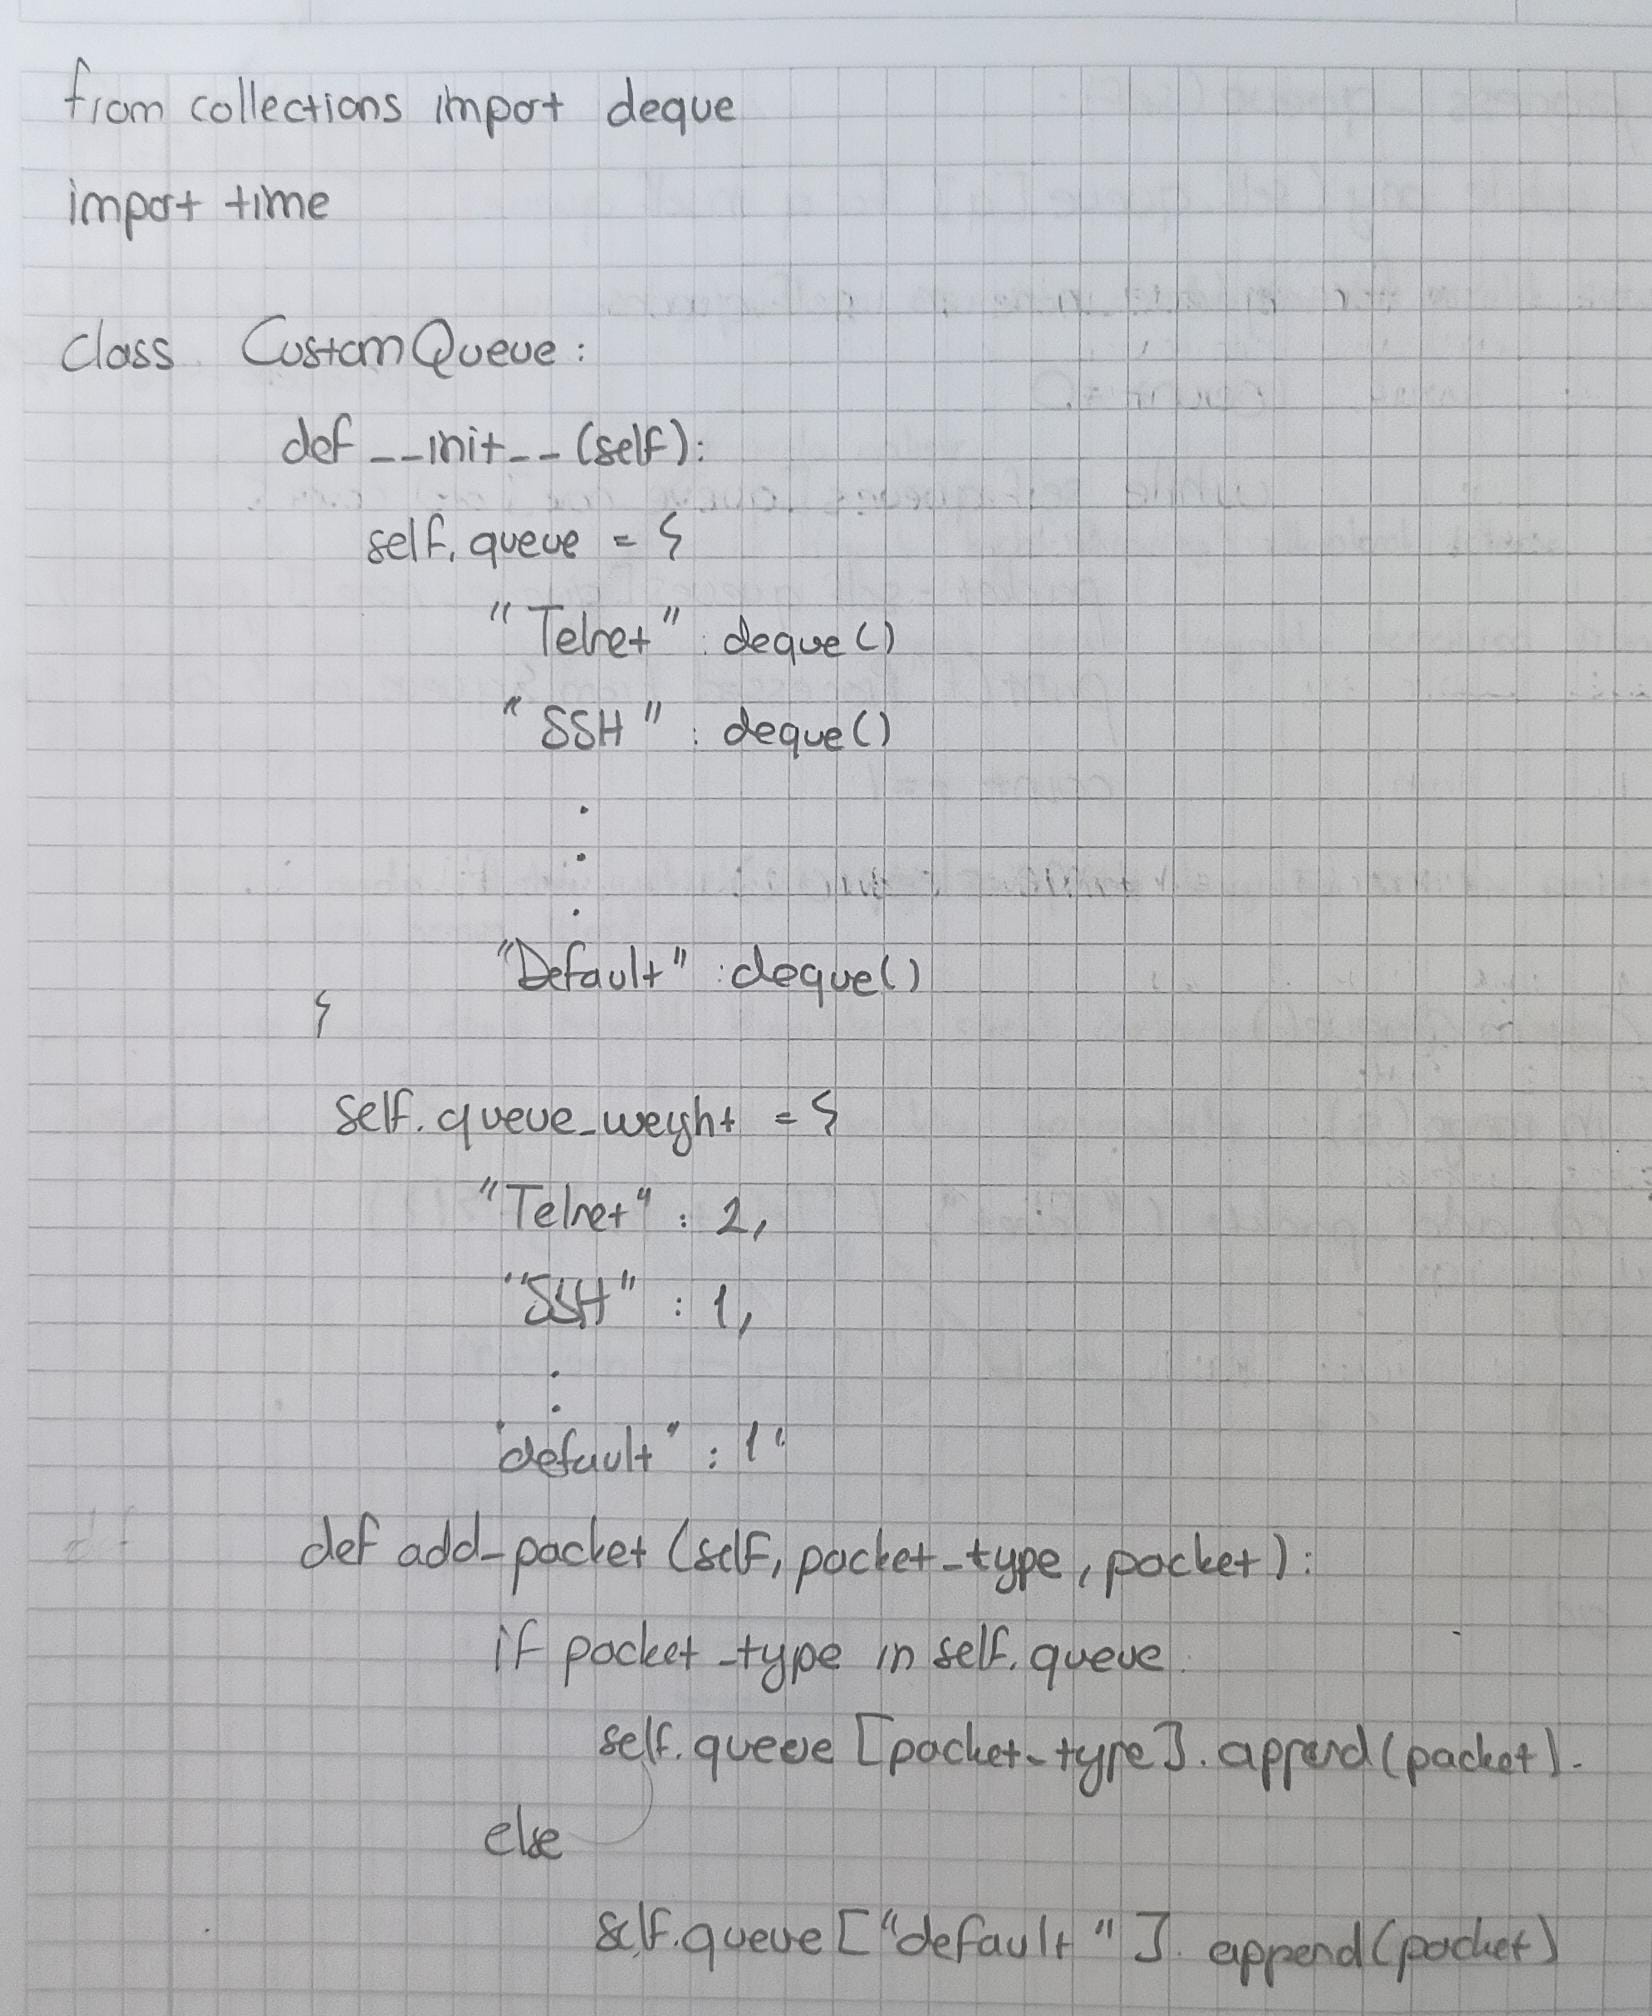 from collections import deque
import time
class CustomQueue:
def __init__(self):
self.queue = {
"Telnet" : deque()
"SSH" : deque()
.
.
.
"Default" : deque()
}
self.queue_weyht = {
"Telnet" : 2,
"SSH" : 1,
.
.
"default" : 1
def add_packet (self, packet_type, packet):
if packet_type in self.queue:
self.queue [packet_type].append(packet).
else
self.queue ["default"].append(packet)